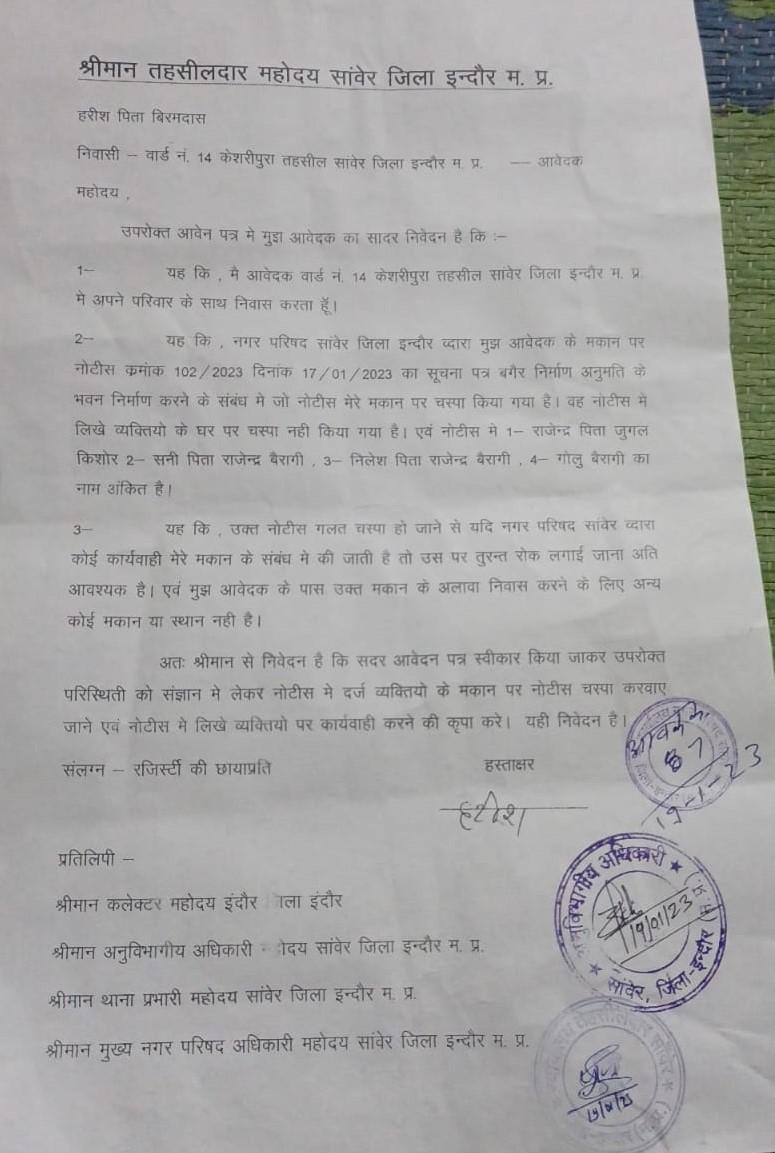 श्रीमान तहसीलदार महोदय सांवेर जिला इन्दौर म. प्र.
हरीश पिता बिरमदास
निवासी – वार्ड नं. 14 केशरीपुरा तहसील सांवेर जिला इन्दौर म. प्र. –– आवेदक
महोदय ,
उपरोक्त आवेन पत्र मे मुझ आवेदक का सादर निवेदन है कि :–
1– यह कि , मै आवेदक वार्ड नं. 14 केशरीपुरा तहसील सांवेर जिला इन्दौर म. प्र.
मे अपने परिवार के साथ निवास करता हूॅं।
2– यह कि , नगर परिषद सांवेर जिला इन्दौर व्दारा मुझ आवेदक के मकान पर
नोटीस क्रमांक 102/2023 दिनांक 17/01/2023 का सूचना पत्र बगैर निर्माण अनुमति के
भवन निर्माण करने के संबंध मे जो नोटीस मेरे मकान पर चस्पा किया गया है। वह नोटीस मे
लिखे व्यक्तियो के घर पर चस्पा नही किया गया है। एवं नोटीस मे 1– राजेन्द्र पिता जुगल
किशोर 2– सनी पिता राजेन्द्र बैरागी , 3– निलेश पिता राजेन्द्र बैरागी , 4– गोलु बैरागी का
नाम अंकित है।
3– यह कि , उक्त नोटीस गलत चस्पा हो जाने से यदि नगर परिषद सांवेर व्दारा
कोई कार्यवाही मेरे मकान के संबंध मे की जाती है तो उस पर तुरन्त रोक लगाई जाना अति
आवश्यक है। एवं मुझ आवेदक के पास उक्त मकान के अलावा निवास करने के लिए अन्य
कोई मकान या स्थान नही है।
अतः श्रीमान से निवेदन है कि सदर आवेदन पत्र स्वीकार किया जाकर उपरोक्त
परिस्थिती को संज्ञान मे लेकर नोटीस मे दर्ज व्यक्तियो के मकान पर नोटीस चस्पा करवाए
जाने एवं नोटीस मे लिखे व्यक्तियो पर कार्यवाही करने की कृपा करे। यही निवेदन है।
आवक क्र
87
19-1-23
संलग्न – रजिस्टी की छायाप्रति हस्ताक्षर
हरीश
प्रतिलिपी –
श्रीमान कलेक्टर महोदय इंदौर इंदौर
श्रीमान अनुविभागीय अधिकारी सांवेर जिला इन्दौर म. प्र.
श्रीमान थाना प्रभारी महोदय सांवेर जिला इन्दौर म. प्र.
श्रीमान मुख्य नगर परिषद अधिकारी महोदय सांवेर जिला इन्दौर म. प्र.
अनुविभागीय अधिकारी
19/01/23
सांवेर, जिला-इन्दौर (म.प्र.)